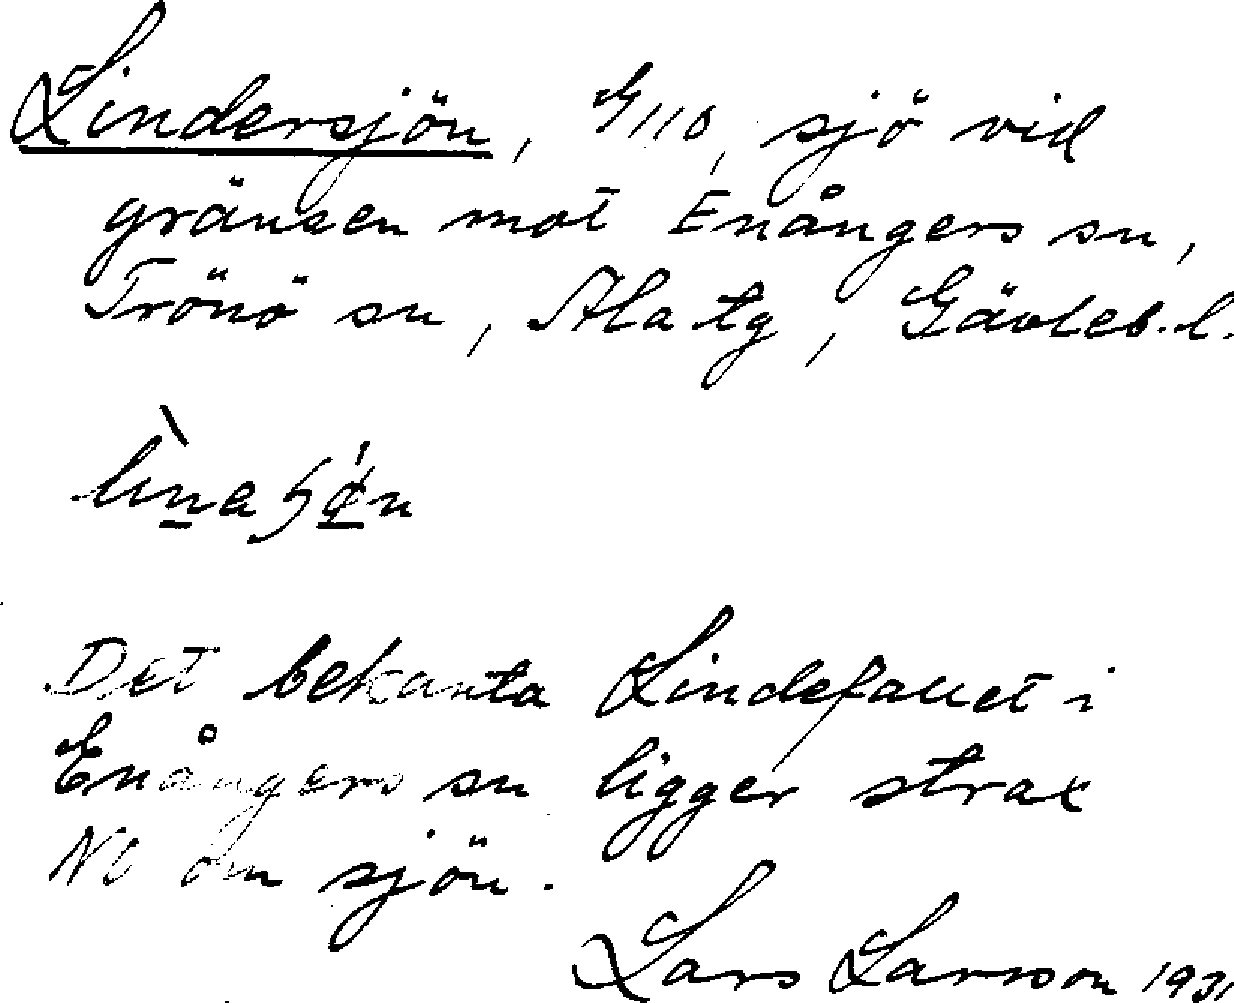 Lindersjön, G110, sjö vid
gränsen mot Enångers sn,
Trönö sn, Ala tg, Gävleb. l.
Det bekanta Lindefallet i
Enångers sn ligger strax
NO om sjön.
Lars Larsson 1931